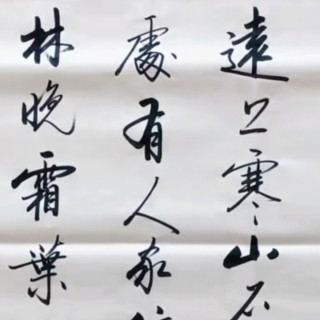 遠上寒山石
處有人家停
林晚霜葉